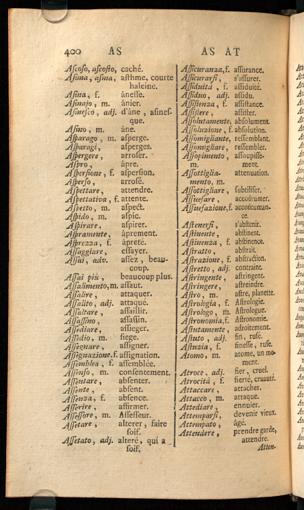 400 AS AS AT
Ascoso, ascosto, caché.
Asima, asma, asthme, courte
haleine.
Asina, f. ânesse.
Asinajo, m. ânier.
Asinesco, adj. d'âne, asines-
que.
Asino, m. âne.
Asparago, m. asperge.
Asparagi, asperges.
Aspergere, arroser.
Aspro, âpre.
Aspersione, f. aspersion.
Asperso, arrosé.
Aspettare, attendre.
Aspettativa, f. attente.
Aspetto, m. aspect.
Aspido, m. aspic.
Aspirare, aspirer.
Aspramente, âprement.
Asprezza, f. âpreté.
Assaggiare, essayer.
Assai, adv. assez, beau-
coup.
Assai più, beaucoup plus.
Assalimento, m. assaut.
Assalire, attaquer.
Assalito, adj. attaqué.
Assaltare, assaillir.
Assassino, assassin.
Assediare, assieger.
Assedio, m. siege.
Assegnare, assigner.
Assegnazione, f. assignation.
Assemblea, f. assemblée.
Assenso, m. consentement.
Assentare, absenter.
Assente, absent.
Assenza, f. absence.
Asserire, affirmer.
Assessore, m. Assesseur.
Assetare, alterer, faire
soif.
Assetato, adj. alteré, qui a
soif.
Assicuranza, f. assurance.
Assicurarsi, s'assurer.
Assiduità, f. assiduité.
Assiduo, adj. assidu.
Assistenza, f. assistance.
Assistere, assister.
Assolutamente, absolument.
Assoluzione, f. absolution.
Assomigliante, ressemblant.
Assomigliare, ressembler.
Assopimento, assoupisse-
m. ment.
Assottiglia- attenuation.
mento, m.
Assottigliare, subtiliser.
Assuefare, accoutumer.
Assuefazione, f. accoutuman-
ce.
Astenersi, s'abstenir.
Astinente, abstinent.
Astinenza, f. abstinence.
Astratto, abstrait.
Astrazione, f. abstraction.
Astretto, adj. contraint.
Astringente, astringent.
Astringere, astreindre.
Astro, m. astre, planette.
Astrologia, f. Astrologie.
Astrologo, m. Astrologue.
Astronomia, f. Astronomie.
Astutamente, adroitement.
Astuto, adj. fin, rusé.
Astuzia, f. finesse, ruse.
Atomo, m. atome, un mo-
ment.
Atroce, adj. fier, cruel.
Atrocità, f. fierté, cruauté.
Attaccare, attacher.
Attacco, m. attaque.
Attediare, ennuier.
Attemparsi, devenir vieux.
Attempato, âgé.
Attendere, prendre garde,
attendre.
Atten-